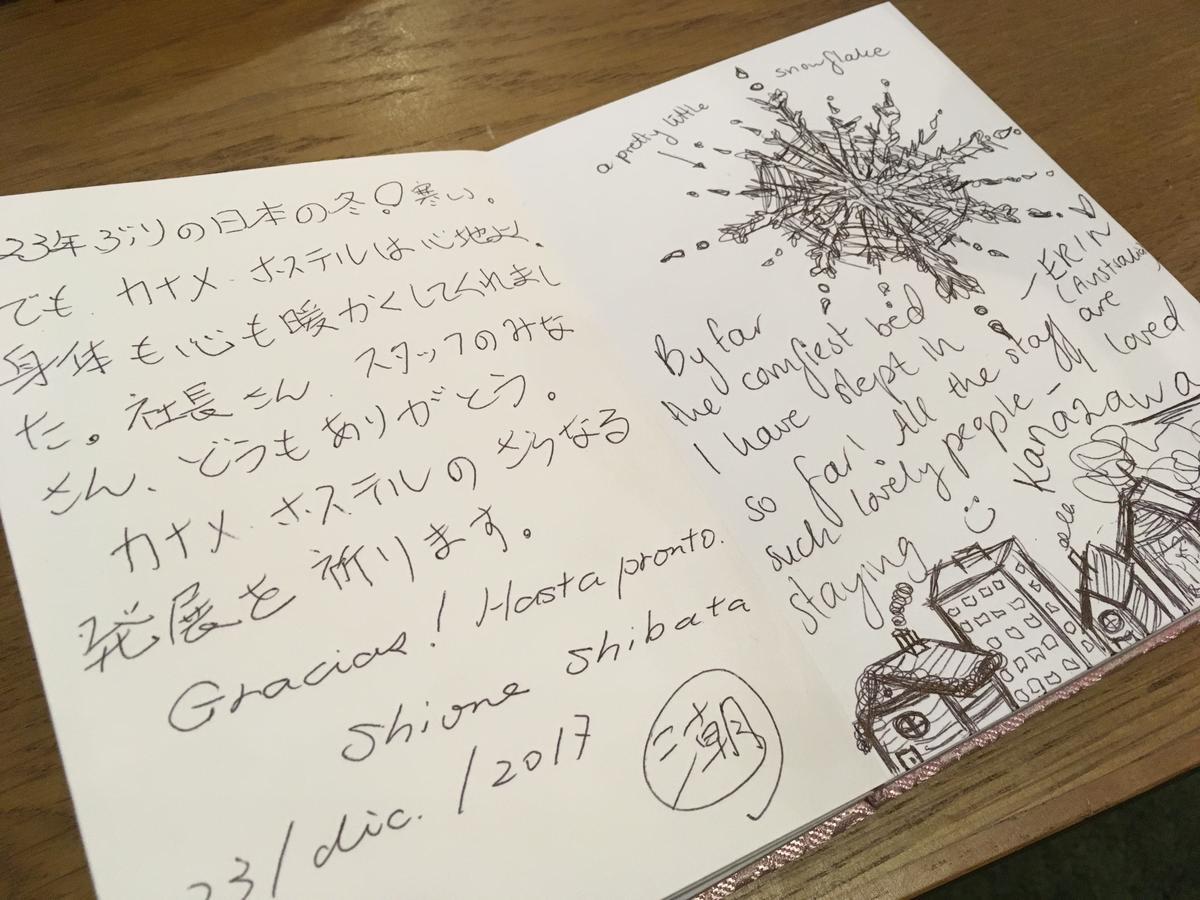 23年ぶりの日本の冬!寒い。
でも カナメ・ホステルは心地よく、
身体も心も暖かくしてくれまし
た。社長さん、スタッフのみな
さん、どうもありがとう。
カナメ・ホステルのさらなる
発展を祈ります。
Gracias! Hasta pronto.
Shione Shibata
潮
23/dic./2017
a pretty little
snowflake
By far
the comfiest bed
I have slept in
so far! All the staff are
such lovely people - loved
staying Kanazawa
— ERIN
(Australia)